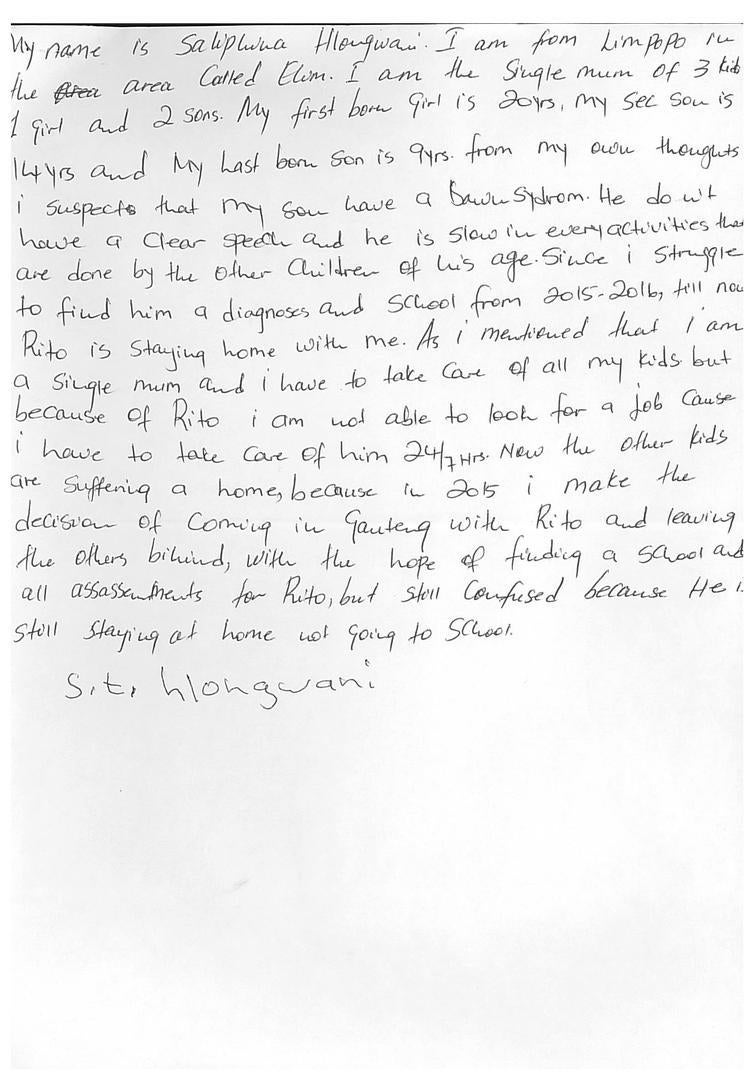 My name is Saliphina Hlongwani. I am from Limpopo in
the area area Called Elim. I am the Single mum of 3 kids
1 girl and 2 sons. My first born Girl is 20yrs, my sec son is
14yrs and My Last born son is 9yrs. from my own thoughts
i suspects that my son have a Down Sydrom. He do nt
have a Clear speech and he is slow in every activities that
are done by the other Children of his age. Since i struggle
to find him a diagnoses and School from 2015-2016, till now
Rito is Staying home with me. As i mentioned that i am
a Single mum and i have to take Care of all my kids but
because of Rito i am not able to look for a job Cause
i have to take Care of him 24/7 Hrs. Now the other kids
are Suffering a home, because in 2015 i make the
decision of Coming in Gauteng with Rito and leaving
the others bihind, with the hope of finding a School and
all assassentments for Rito, but still Confused because He is
still Staying at home not going to School.
S.t. hlongwani